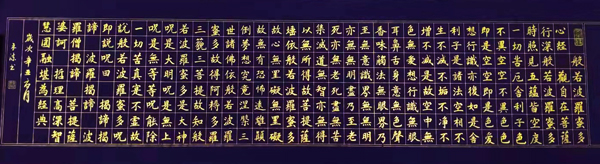 般若波羅蜜多
心經 觀自在菩薩
行深般若波羅蜜多
時照見五蘊皆空度
一切苦厄舍利子色
不異空空不異色色
即是空空即是色受
想行識亦復如是舍
利子是諸法空相不
生不滅不垢不淨不
增不減是故空中無
色無受想行識無眼
耳鼻舌身意無色聲
香味觸法無眼界乃
至無意識界無無明
亦無無明盡乃至老
死亦無老死盡無苦
集滅道無智亦無得
以無所得故菩提薩
埵依般若波羅蜜多
故心無罣礙無罣礙
故無有恐怖遠離顛
倒夢想究竟涅槃三
世諸佛依般若波羅
蜜多故得阿耨多羅
三藐三菩提故知般
若波羅蜜多是大神
咒是大明咒是無上
咒是無等等咒能除
一切苦真實不虛故
說般若波羅蜜多咒
即說咒曰 揭諦揭
諦 波羅揭諦 波
羅僧揭諦 菩提薩
婆訶 哲理高深智
慧圓融堪為經典
歲次辛丑 月